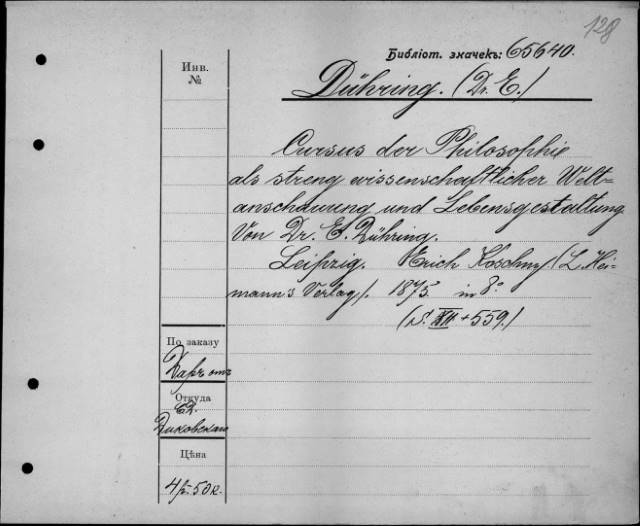 128
Библіот. значекъ: 65640.
Инв.
№
Dühring. (Dr. E.)
Cursus der Philosophie
als streng wissenschaftlicher Welt=
anschauung und Lebensgestaltung
Von Dr. E. Dühring.
Leipzig. Erich Koschny. (L. Hei-
mann's Verlag). 1875. in 8º
(S. XII + 559.)
По заказу
Даръ отъ
Откуда
Диковскаго
Цѣна
4 р. 50 к.